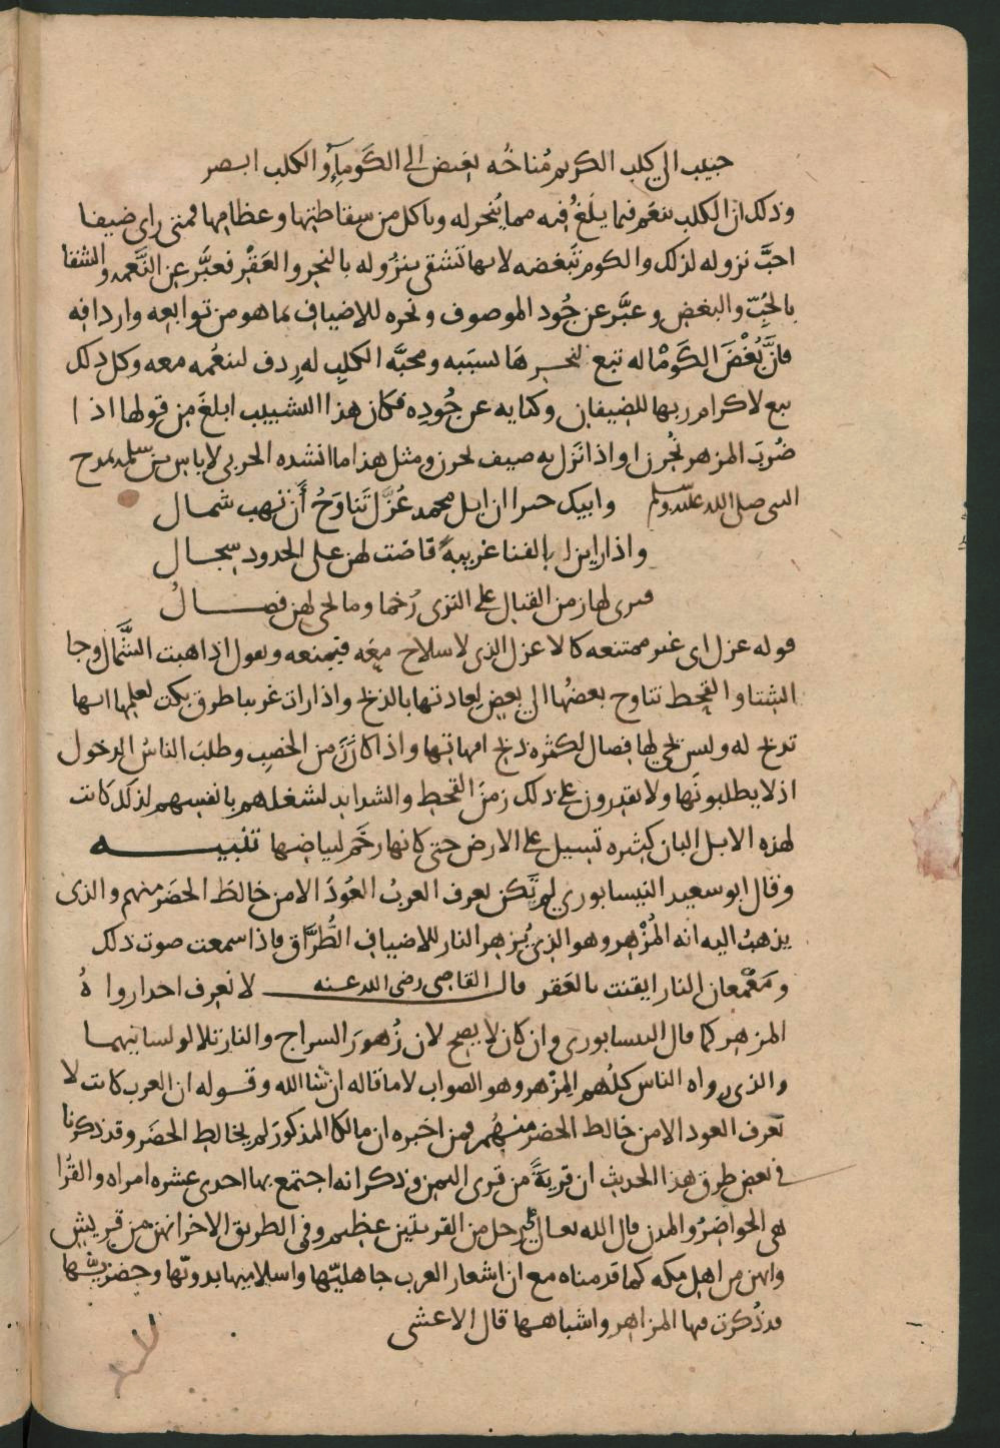 حبيب الى كلب الكريم مُناخُه بغيض الى الكَوماءِ والكلب ابصر
وذلك ان الكلب ينعَم فيما يلَغُ فيه مما يُنحر له وياكل من سِقاطتها وعظامها فمتى راى ضيفا
احبَّ نزوله لذلك والكوم تبغضه لانها تشقى بنزُوله بالنحر والعَقْر فعبَّر عن النَّعمه والشقا
بالحُبّ والبغض وعبَّر عن جُود الموصوف ونحره للاضياف بما هو من توابعه واردافه
فانَّ بُغْضَ الكَومْا له تبع لنحرهَا بسببه ومحبَّه الكلب له رِدف لتنعُّمه معه وكل ذلك
تبع لاكرام ربها للضيفان وكنايه عن جُودِه فكان هذا التشبيب ابلغَ من قولها اذا
ضُربَ المزهر نُحرن او اذا نَزل به ضيف نحرن ومثل هذا ما انشده الحربى لاياس بن سلمه يمدح
النبى صلى الله عليه وسلم وابيك خيرا ان ابل محمد عُزَّل تَناوَحُ أَن تهب شمال
واذا راين لدا الفنا غريبةً فاضت لهن على الخدود سجال
وترى لها زمن القبال على الثرى رُخما وما لحى لهن فصالُ
قوله عزل اى غير ممتنعه كالاعزل الذى لا سلاح معَه فيمنعه ويقول اذا هبت الشَّمال وجا
الشتا والقحط تناوح بعضُها الى بعض لعادتها بالذبح واذا رات غريبا طرق بكت لعلمها انها
تذبح له وليس تحيى لها فصال لكثره ذبح امهاتها واذا كان زَمن الخصِب وطلبَ الناسُ الدخول
اذ لا يطلبونَها ولا يقدرون على ذلك زمنَ القحط والشدايد لشغلهم بانفسهم لذلك كانت
لهذه الابل البان كثيره تسيل على الارض حتى كانها رخَم لبياضها تنبيه
وقال ابو سعيد النيسابوري لم تكن تعرف العربُ العُودَ الا من خالطَ الحضَر منهم والذى
يذهبُ اليه انه المُزْهِر وهو الذي يُزهر النار للاضياف الطُّرَّاق فاذا سمعت صوت ذلك
ومَعْمعان النار ايقنت بالعَقر قال القاضى رضى الله عنه لا نعرف احدا رواهُ
المزهر كما قال النيسابورى وان كان لا يصح لان زُهورَ السراج والنار تلالو لسانيهما
والذى رواه الناس كلُهم المِزهر وهو الصواب لا ما قاله ان شا الله وقوله ان العرب كانت لا
تعرف العود الا من خالط الحضر منهُم فمن اخبره ان مالكا المذكور لم يخالط الحضَر وقد ذكرنا
في بعض طرق هذا الحديث ان قريةً من قرى اليمن وذكر انه اجتمع بها احدى عشره امراه والقُرا
هى الحواضرُ والمدن قال الله تعالى على رجل من القريتين عظيم وفى الطريق الاخر انهن من قريش
وانهن من اهل مكه كما قدمناه مع ان اشعار العرب جاهليّها واسلاميها بدويّها وحضريّها
قد ذُكرت فيها المزاهر واشباهها قال الاعشى